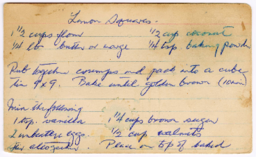 Lemon Squares
1 1/2 cups flour 1/2 cup coconut
1/4 lb butter or marge 1/2 tsp baking powder
Rub together crumps and pack into a cube
tin 9x9. Bake until golden brown (10min)
Mix the following
1 tsp. vanilla 1 1/2 cup brown sugar
2 eggs. 1/2 cup walnuts
Place on top of baked